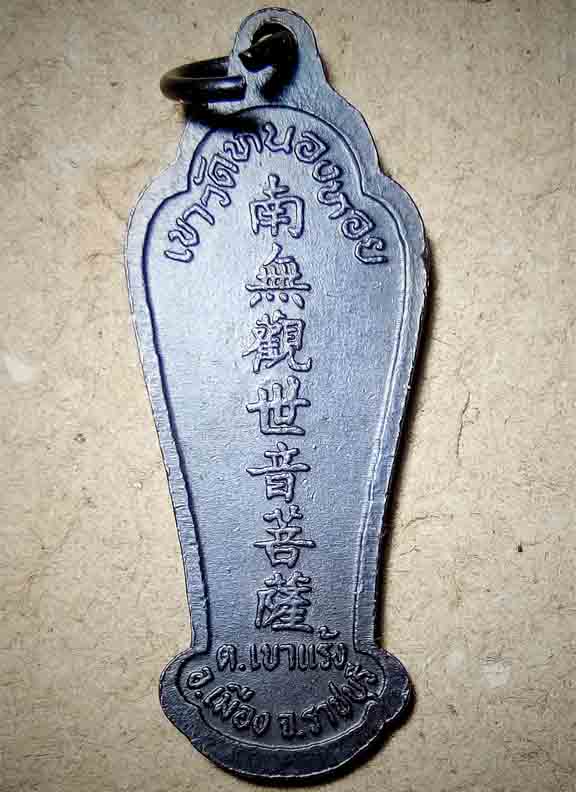 เขาวัดหนองหอย
南無觀世音菩薩
ต.เขาแร้ง
อ.เมือง จ.ราชบุรี